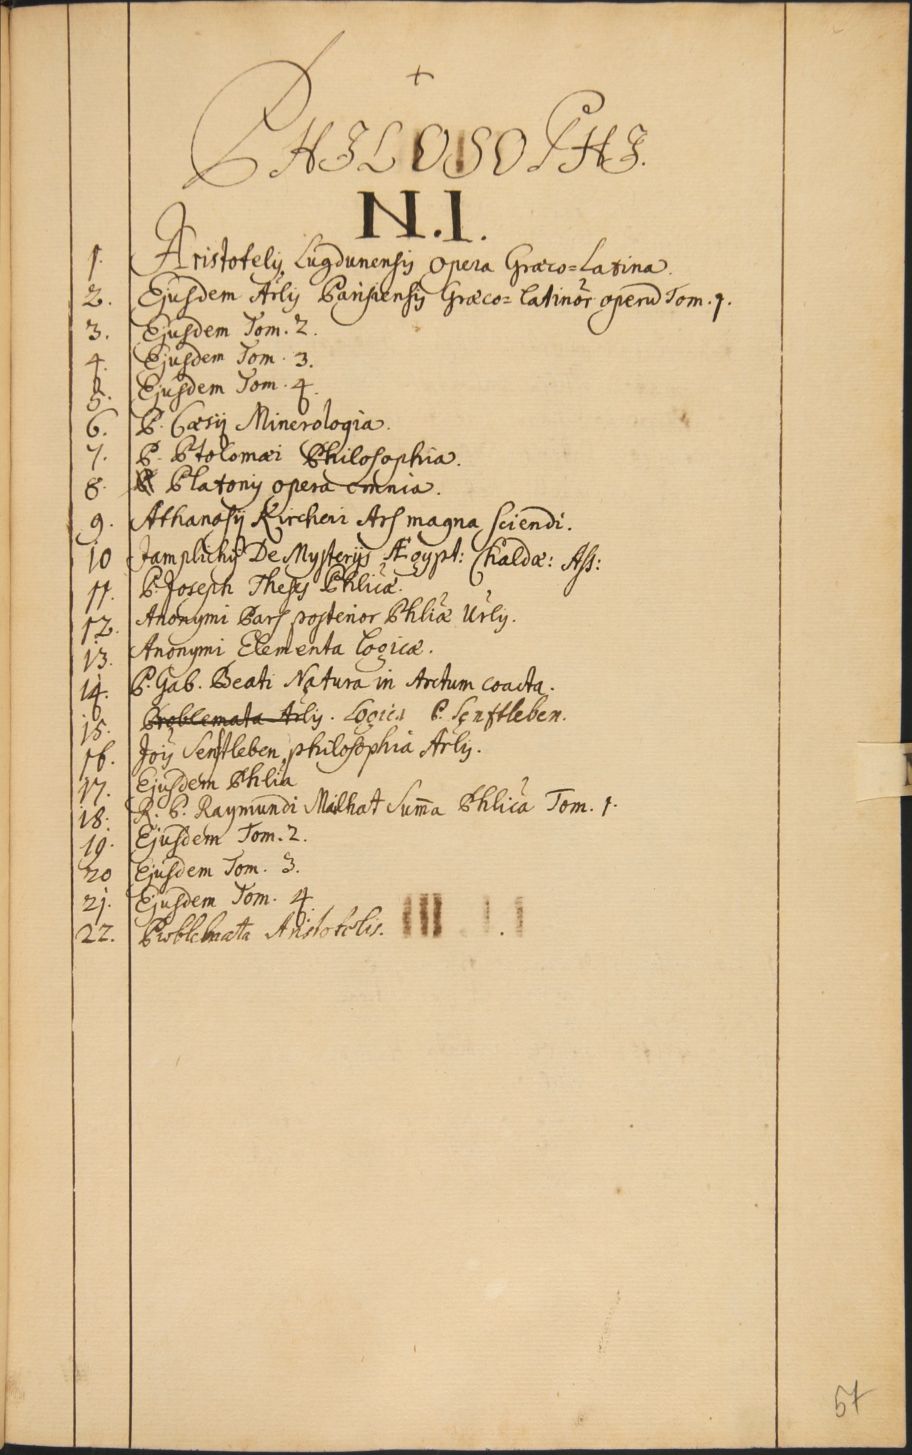 +
PHILOSOPHI.
N.I.
1. Aristotelis Lugdunensis Opera Græco=Latina.
2. Ejusdem Arlis Parisiensis Græco=Latinor operu Tom. 1.
3. Ejusdem Tom. 2.
4. Ejusdem Tom. 3.
5. Ejusdem Tom. 4.
6. P. Cæsij Minerologia.
7. P. Ptolomæi Philosophia.
8. Platonis opera omnia.
9. Athanasij Kircheri Ars magna sciendi.
10 Jamplichij De Mysterijs Ægypt: Chaldæ: Ass:
11. P. Joseph Theses Phlicæ.
12. Anonymi Pars posterior Phliæ Urlis.
13. Anonymi Elementa Logicæ.
14. P. Gab. Beati Natura in Arctum coacta.
15. Problemata Arlis. Logica P. Senftleben.
16. Jois Senftleben philosophia Arlis.
17. Ejusdem Phlia
18. R. P. Raymundi Malhat Summa Phlica Tom. 1.
19. Ejusdem Tom. 2.
20 Ejusdem Tom. 3.
21. Ejusdem Tom. 4.
22. Problemata Aristotelis.
57